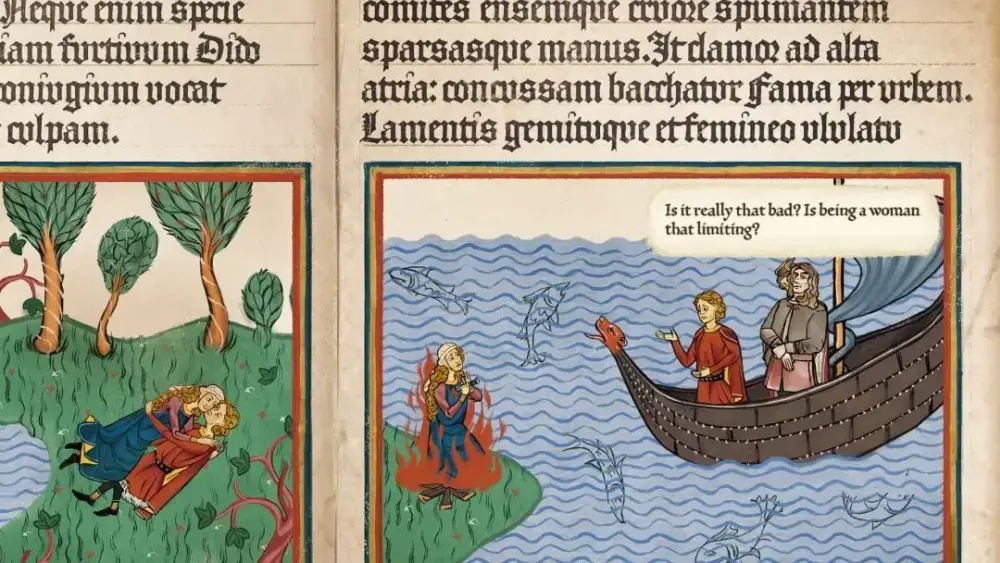 Aeque enim specie
iam furtivum Dido
oniugium vocat
culpam.
comites ensemque cruore spumantem
sparsasque manus. It clamor ad alta
atria: concussam bacchatur Fama per urbem.
Lamentis gemituque et femineo ululatu
Is it really that bad? Is being a woman
that limiting?